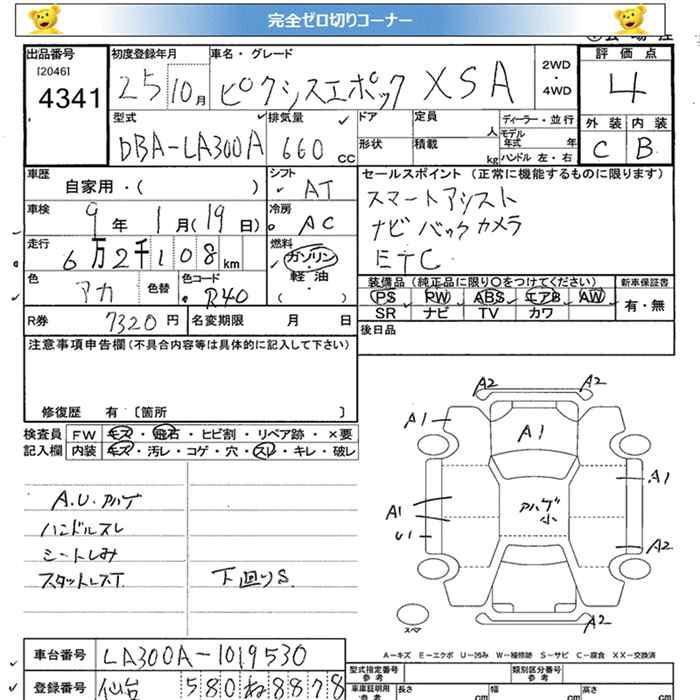 完全ゼロ切りコーナー
出品番号
[2046]
4341
初度登録年月
25 10 月
車名・グレード
ピクシスエポック XSA
2WD
・
4WD
評価点
4
外装 内装
C B
型式
DBA-LA300A
排気量
660 cc
ドア
形状
定員
人
積載
kg
ディーラー・並行
モデル
年式 年
ハンドル 左・右
車歴
自家用・( )
シフト
AT
車検
9 年 1 月(19 日)
冷房
AC
走行
6万2千108 km
燃料
ガソリン
・
軽油
( )
色
アカ
色替
色コード
R40
セールスポイント (正常に機能するものに限ります)
スマートアシスト
ナビ バックカメラ
ETC
装備品 (純正品に限り○をつけてください)
PS PW ABS エアB AW
SR ナビ TV カワ
新車保証書
有・無
R券 7320 円
名変期限 月 日
後日品
注意事項申告欄 (不具合内容等は具体的に記入して下さい)
修復歴 有 〔箇所 〕
検査員 FW キズ・飛石・ヒビ割・リペア跡・×要
記入欄 内装 キズ・汚レ・コゲ・穴・スレ・キレ・破レ
A.U.アハゲ
ハンドルスレ
シートしみ
スタットレスT
下廻りS
A2 A2
A1
A1
A1
アハゲ
小
A1
U1
A2
A2
スペア
A-キズ E-エクボ U-凹み W-補修跡 S-サビ C-腐食 XX-交換済
車台番号 LA300A-1019530
登録番号 仙台 580 ね 8878
型式指定番号
参考
類別区分番号
参考
車庫証明用
参考
長さ cm 幅 cm 高さ cm